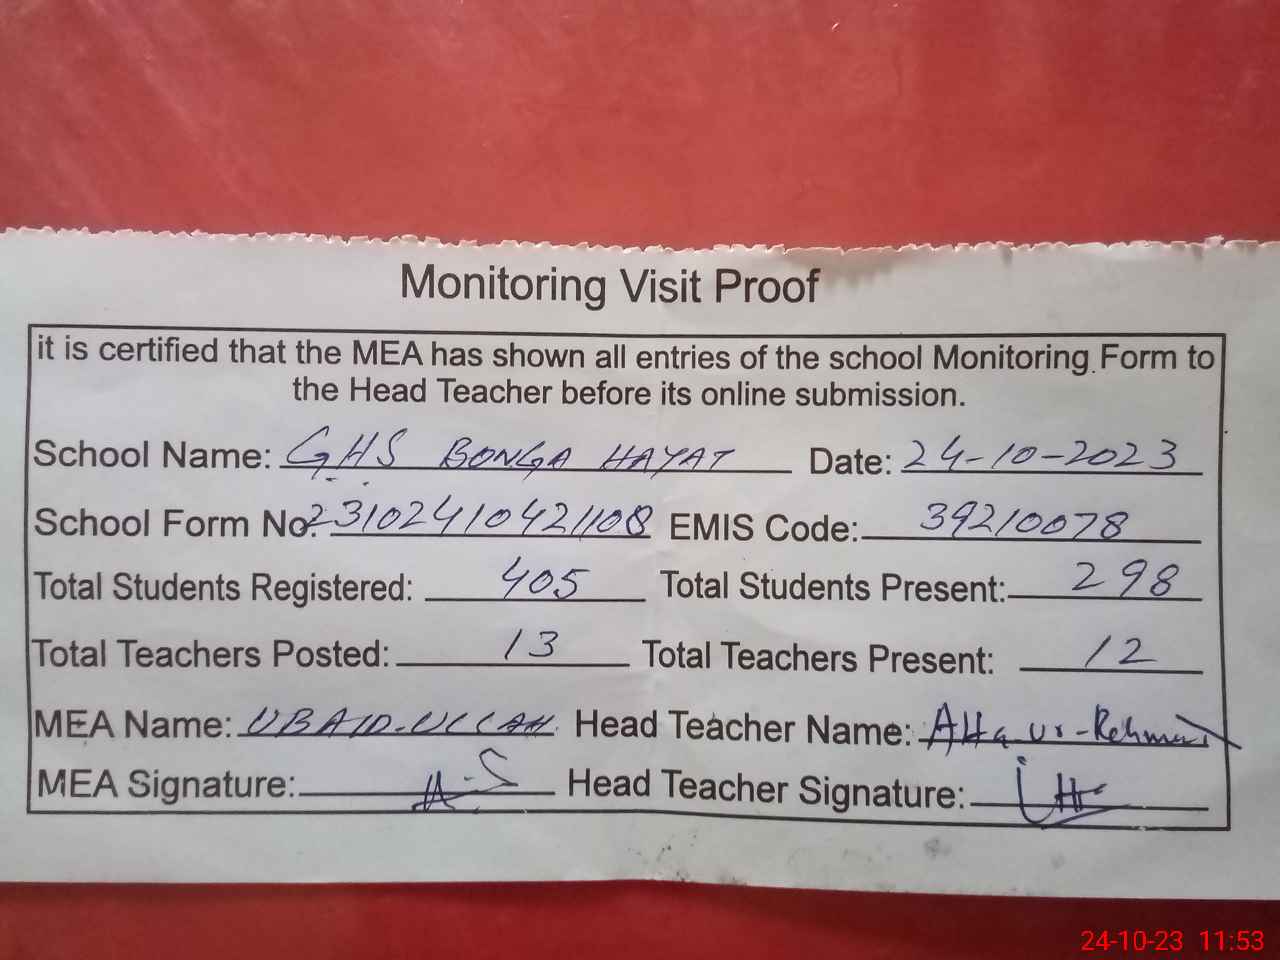 Monitoring Visit Proof
it is certified that the MEA has shown all entries of the school Monitoring Form to
the Head Teacher before its online submission.
School Name: GHS BONGA HAYAT Date: 24-10-2023
School Form No: 23102410421108 EMIS Code: 39210078
Total Students Registered: 405 Total Students Present: 298
Total Teachers Posted: 13 Total Teachers Present: 12
MEA Name: UBAID-ULLAH Head Teacher Name: Atta-ur-Rehman
MEA Signature: Head Teacher Signature:
24-10-23 11:53